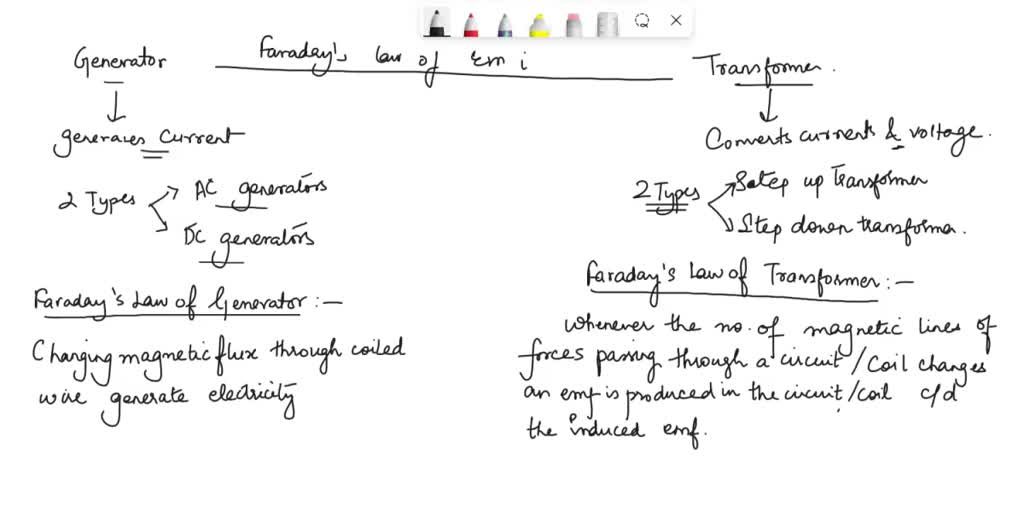 Generator
Faraday's law of Em i
Transformer.
generates current
Converts current & voltage.
2 Types
AC generators
DC generators
2 Types
Step up Transformer
Step down transformer.
Faraday's Law of Generator:-
Changing magnetic flux through coiled
wire generate electricity
Faraday's Law of Transformer:-
Whenever the no. of magnetic lines of
forces passing through a circuit/Coil changes
an emf is produced in the circuit/coil c/d
the induced emf.